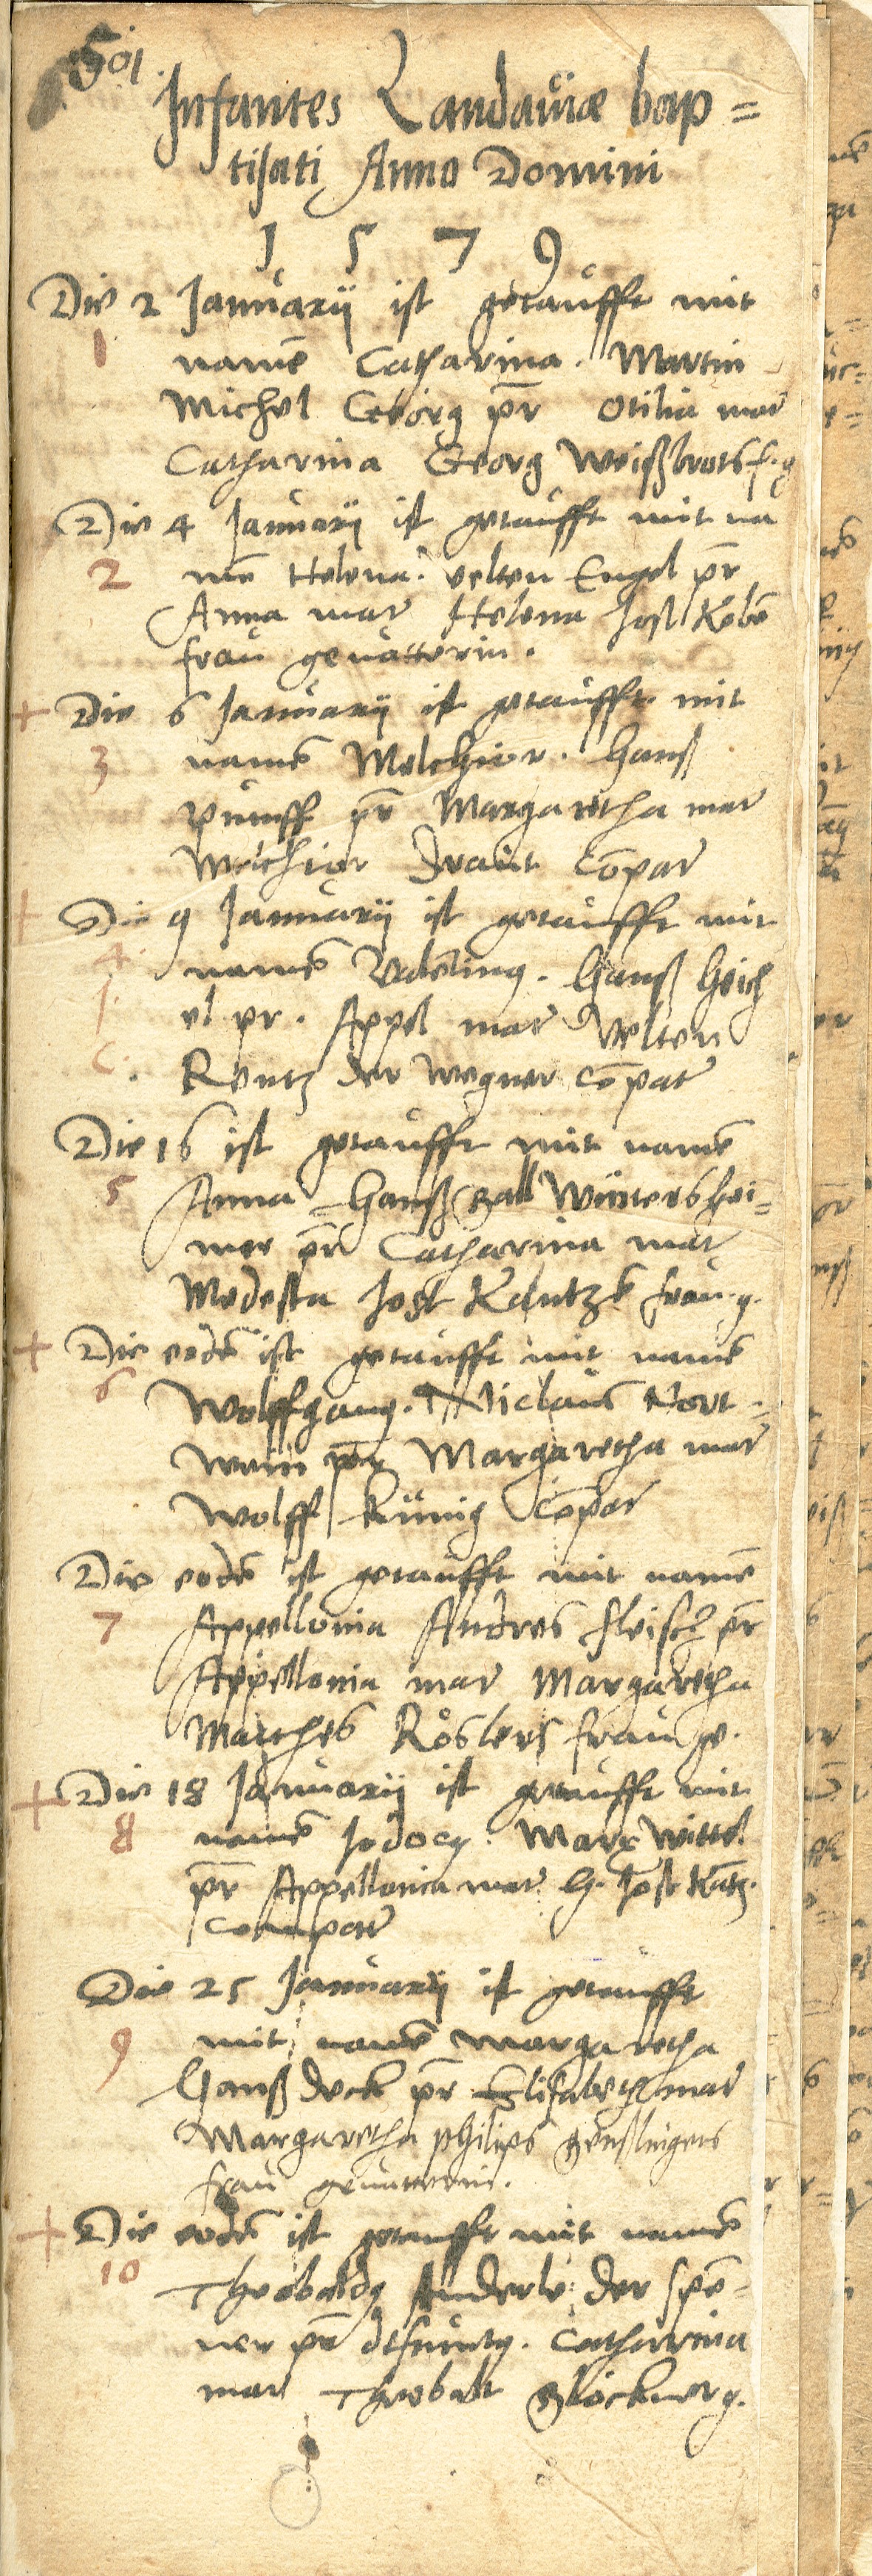 501.
Infantes Landaviæ bap=
tisati Anno Domini
1 5 7 9
Die 2 Januarij ist getaufft mit
1 namē Catharina. Martin
Michel pr̄ Otilia mar
Catharina Georg Weißbrots f. g
Die 4 Januarij ist getaufft mit na
2 mē Helena. velten Engel pr̄
Anna mar Helena Jost Kobē
frau gevatterin.
+ Die 6 Januarij ist getaufft mit
3 namē Melchior. Hanß
pr̄ Margaretha mar
Melchior cōpar
+ Die 9 Januarij ist getaufft mit
4 namē Valētinꝰ. Hanß Heich
el pr. Appel mar Velten
Rentz der wegner cōpar
Die 16 ist getaufft mit namē
5 Anna Hanß Ball Wintershei=
mer pr̄ Catharina mar
Modesta Jost Kantzē frau. g.
+ Die eodē ist getaufft mit namē
6 Wolffgang. Niclaus Nort=
wein pr̄ Margaretha mar
Wolff Künig cōpar
Die eodē ist getaufft mit namē
7 Appellonia Andres fleisch pr̄
Appellonia mar Margaretha
Matthes Röslers frau ge.
+ Die 18 Januarij ist getaufft mit
8 namē Jodocꝰ. Marx Wittel
pr̄ Appellonia mar. H. Jost
Compar
Die 25 Januarij ist getaufft
9 mit namē Margaretha
Hanß Deck pr̄ Elisabeth mar
Margaretha philips genßlingers
frau gevatterin.
+ Die eodē ist getaufft mit namē
10 Theobaldꝰ Enderle der spē=
ner pr̄ defunctꝰ. Catharina
mar Theobalt Glöckner g.